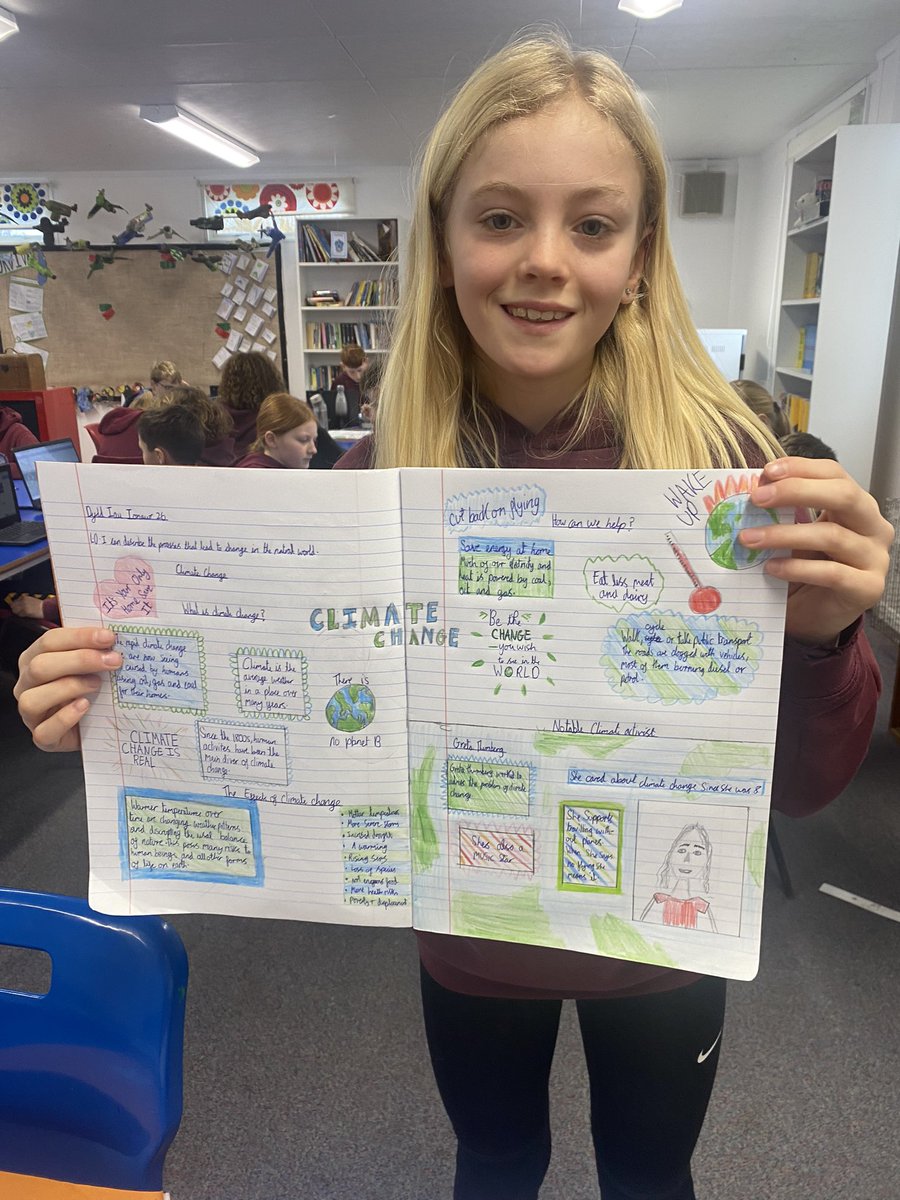 Dydd Iau Ionawr 26
LO: I can describe the processes that lead to change in the natural world.
Climate Change
It's Your Only
Home Save
It
What is climate change?
CLIMATE
CHANGE
The rapid climate change
we are now seeing
is caused by humans
using oil, gas and coal
for their homes.
Climate is the
average weather
in a place over
many years.
There is
no planet B
CLIMATE
CHANGE IS
REAL
Since the 1800s, human
activites have been the
main driver of climate
change.
The Effects of Climate change
Warmer temperatures over
time are changing weather patterns
and disrupting the usual balance
of nature. This poses many risks to
human beings and all other forms
of life on earth.
• Hotter temperatures
• More severe storms
• Increased drought
• A warming
• Rising seas
• Loss of species
• Not enough food
• More health risks
• Poverty + displacement
Cut back on flying
How can we help?
WAKE
UP
Save energy at home
Much of our electricity and
heat is powered by coal,
oil and gas.
Eat less meat
and dairy
Be the
CHANGE
you wish
to see in the
WORLD
cycle
Walk, or take public transport
the roads are clogged with vehicles,
most of them burning diesel or
petrol
Notable Climate activist
Greta Thunberg
Greta thunberg worked to
adress the problem of climate
change.
She cared about climate change since she was 8
She's also a
Music Star
She supports
travelling with-
out planes
when She says
no flying she
means it.